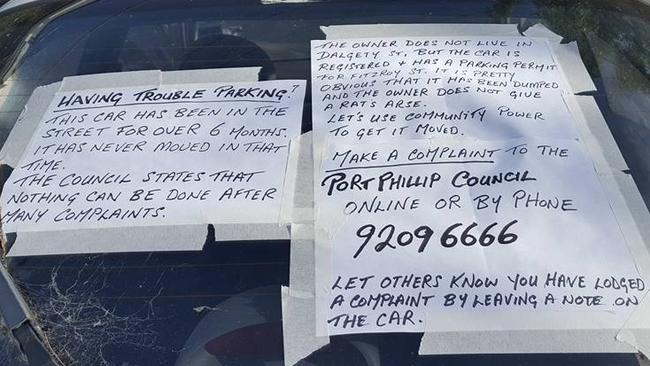 HAVING TROUBLE PARKING?
THIS CAR HAS BEEN IN THE
STREET FOR OVER 6 MONTHS.
IT HAS NEVER MOVED IN THAT
TIME.
THE COUNCIL STATES THAT
NOTHING CAN BE DONE AFTER
MANY COMPLAINTS.
THE OWNER DOES NOT LIVE IN
DALGETY ST. BUT THE CAR IS
REGISTERED + HAS A PARKING PERMIT
FOR FITZROY ST. IT IS PRETTY
OBVIOUS THAT IT HAS BEEN DUMPED
AND THE OWNER DOES NOT GIVE
A RAT'S ARSE.
LET'S USE COMMUNITY POWER
TO GET IT MOVED.
MAKE A COMPLAINT TO THE
PORT PHILLIP COUNCIL
ONLINE OR BY PHONE
92096666
LET OTHERS KNOW YOU HAVE LODGED
A COMPLAINT BY LEAVING A NOTE ON
THE CAR.